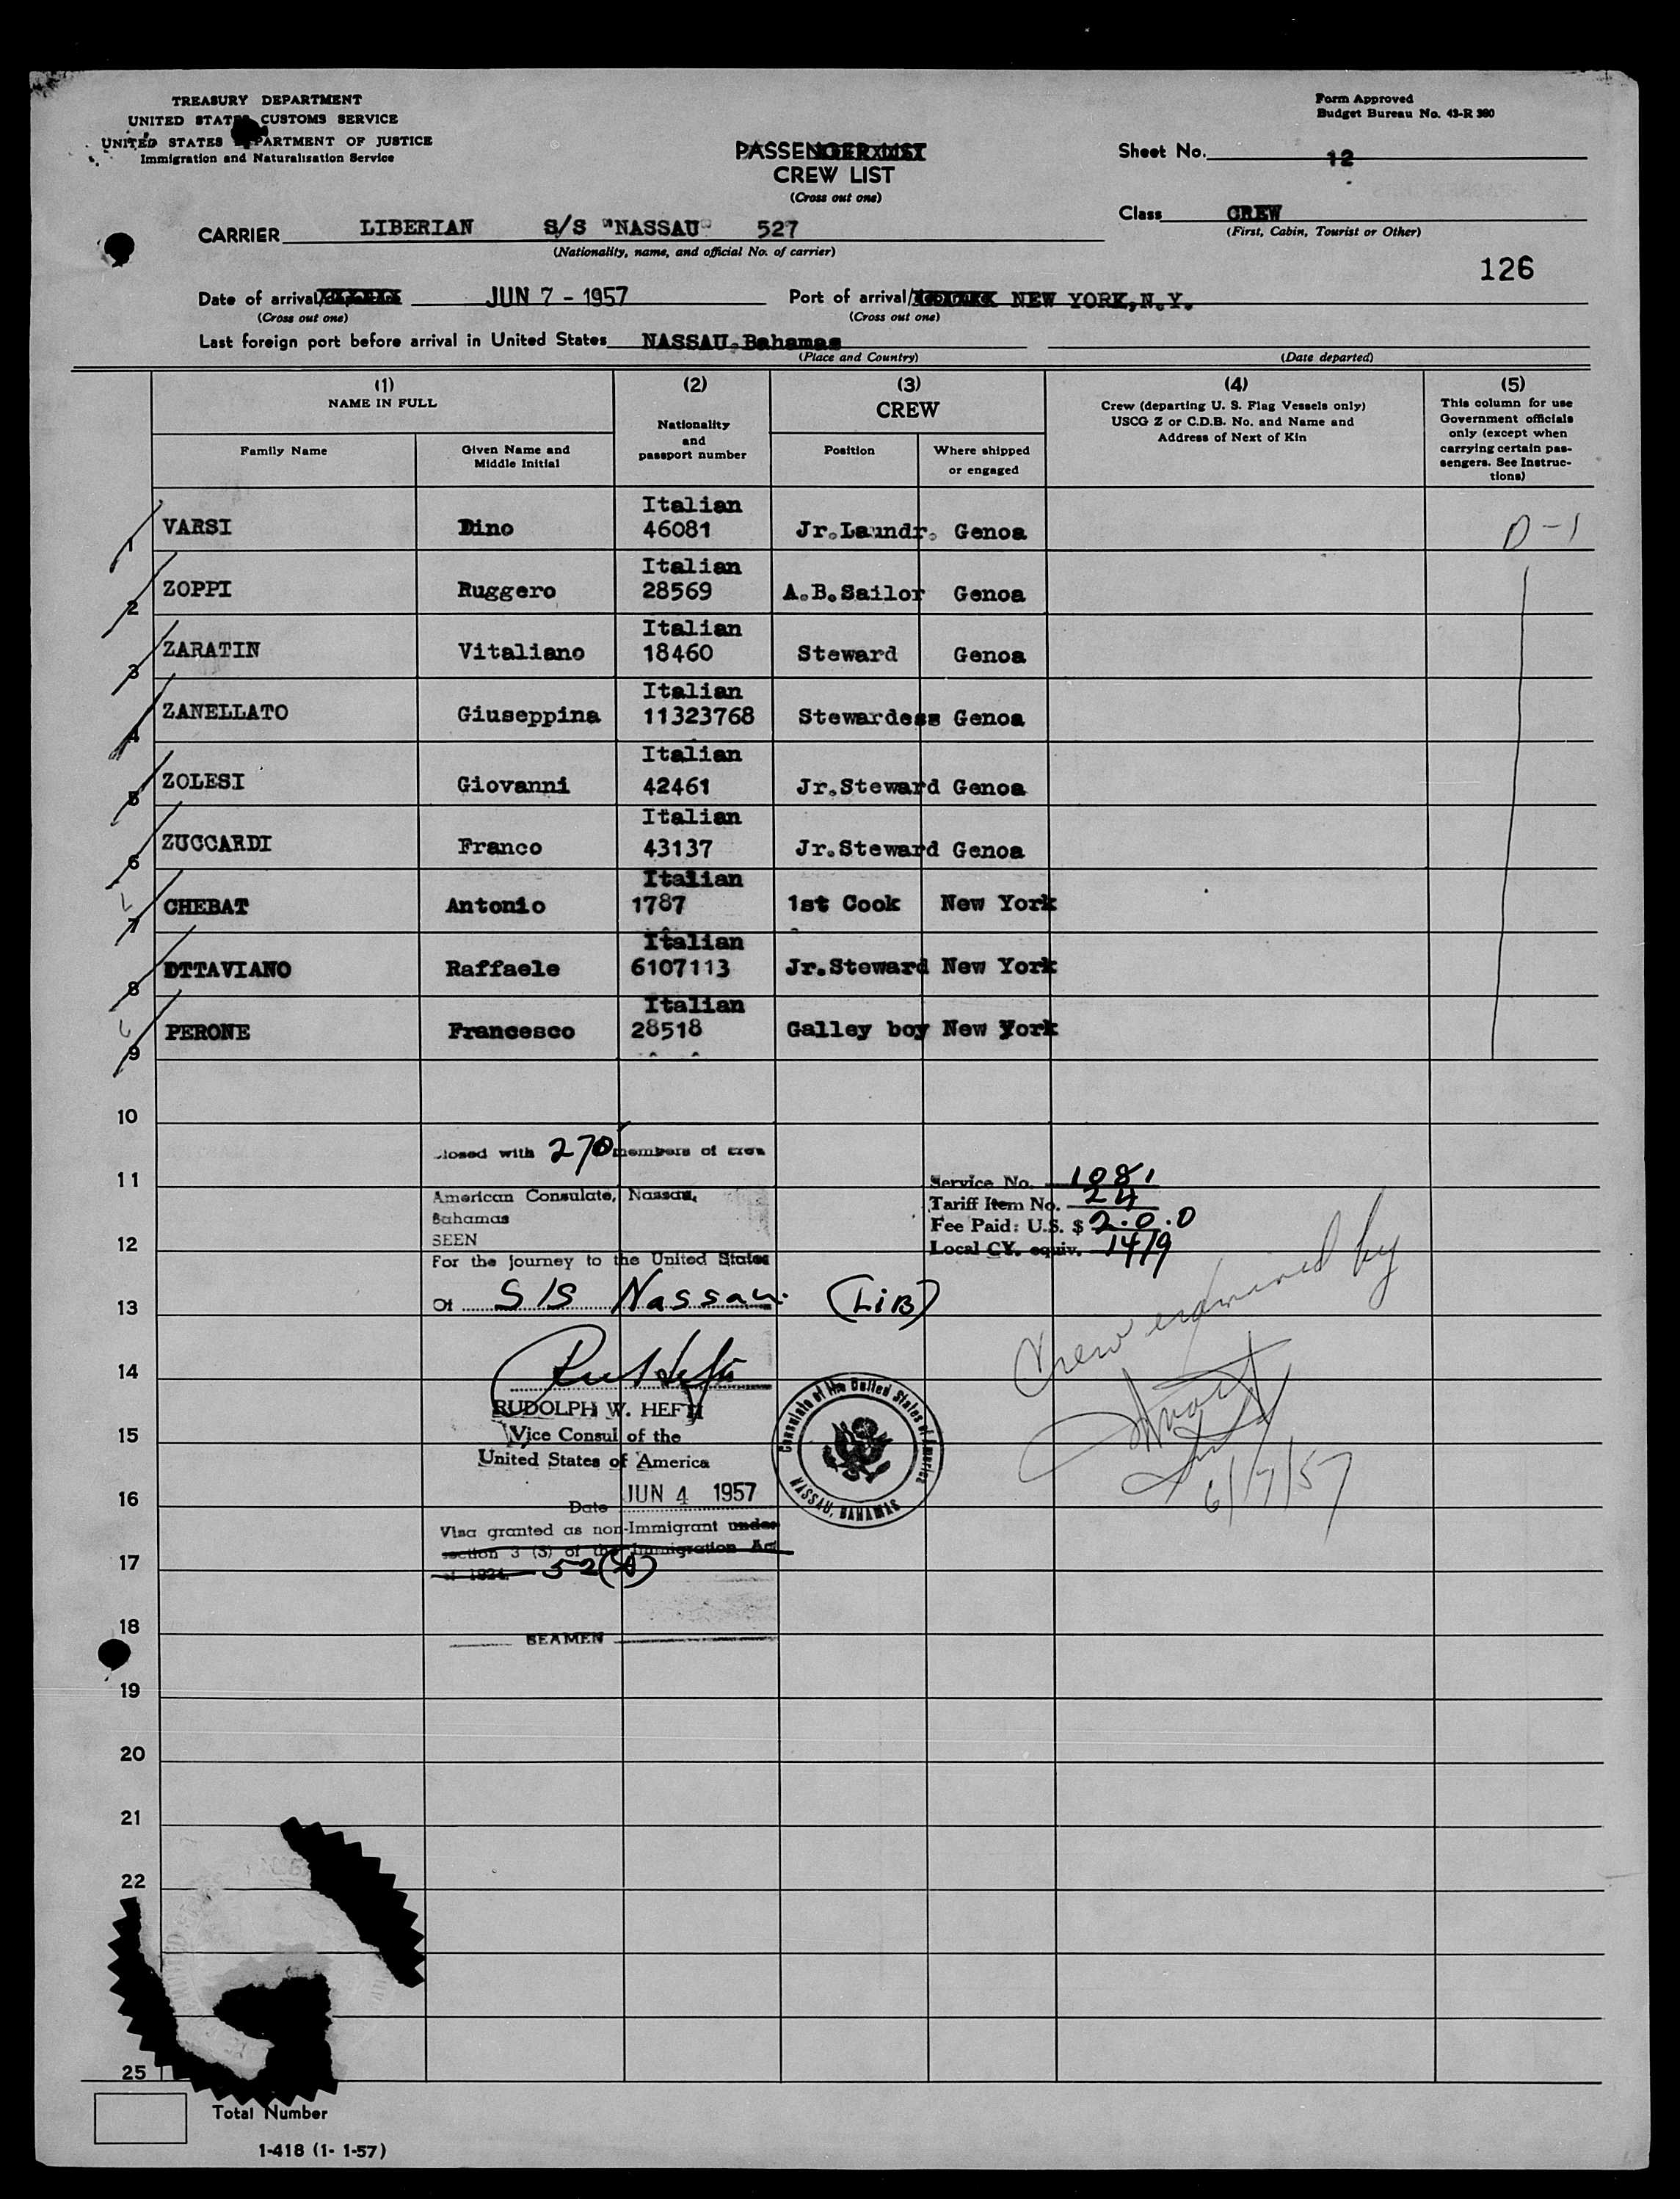 TREASURY DEPARTMENT
UNITED STATES CUSTOMS SERVICE
UNITED STATES DEPARTMENT OF JUSTICE
Immigration and Naturalization Service
Form Approved
Budget Bureau No. 43-R 380
PASSENGER LIST
CREW LIST
(Cross out one)
Sheet No. 12
Class CREW
(First, Cabin, Tourist or Other)
CARRIER LIBERIAN S/S "NASSAU" 527
(Nationality, name, and official No. of carrier)
126
Date of arrival/ JUN 7 - 1957 Port of arrival/ NEW YORK, N.Y.
(Cross out one) (Cross out one)
Last foreign port before arrival in United States NASSAU, Bahamas
(Place and Country) (Date departed)
(1) NAME IN FULL
Family Name
Given Name and Middle Initial
(2) Nationality and passport number
(3) CREW
Position
Where shipped or engaged
(4) Crew (departing U. S. Flag Vessels only) USCG Z or C.D.B. No. and Name and Address of Next of Kin
(5) This column for use Government officials only (except when carrying certain passengers. See Instructions)
1 VARSI Dino Italian 46081 Jr.Laundr. Genoa D-1
2 ZOPPI Ruggero Italian 28569 A.B.Sailor Genoa
3 ZARATIN Vitaliano Italian 18460 Steward Genoa
4 ZANELLATO Giuseppina Italian 11323768 Stewardess Genoa
5 ZOLESI Giovanni Italian 42461 Jr.Steward Genoa
6 ZUCCARDI Franco Italian 43137 Jr.Steward Genoa
7 CHEBAT Antonio Italian 1787 1st Cook New York
8 OTTAVIANO Raffaele Italian 6107113 Jr.Steward New York
9 PERONE Francesco Italian 28518 Galley boy New York
10
Closed with 270 members of crew
11
American Consulate, Nassau,
Bahamas
SEEN
Service No. 1081
Tariff Item No. 24
Fee Paid: U.S. $ 2.0.0
Local CY. equiv. 14/9
12
For the journey to the United States
Of S/S Nassau. (LiB)
13
Crew examined by
14
RUDOLPH W. HEFTI
15
Vice Consul of the
United States of America
Consulate of the United States of America
NASSAU, BAHAMAS
6/7/57
16
Date JUN 4 1957
Visa granted as non-Immigrant under
section 3 (5) of the Immigration Act
of 1924.
17
18
SEAMEN
19
20
21
22
25
Total Number
1-418 (1- 1-57)